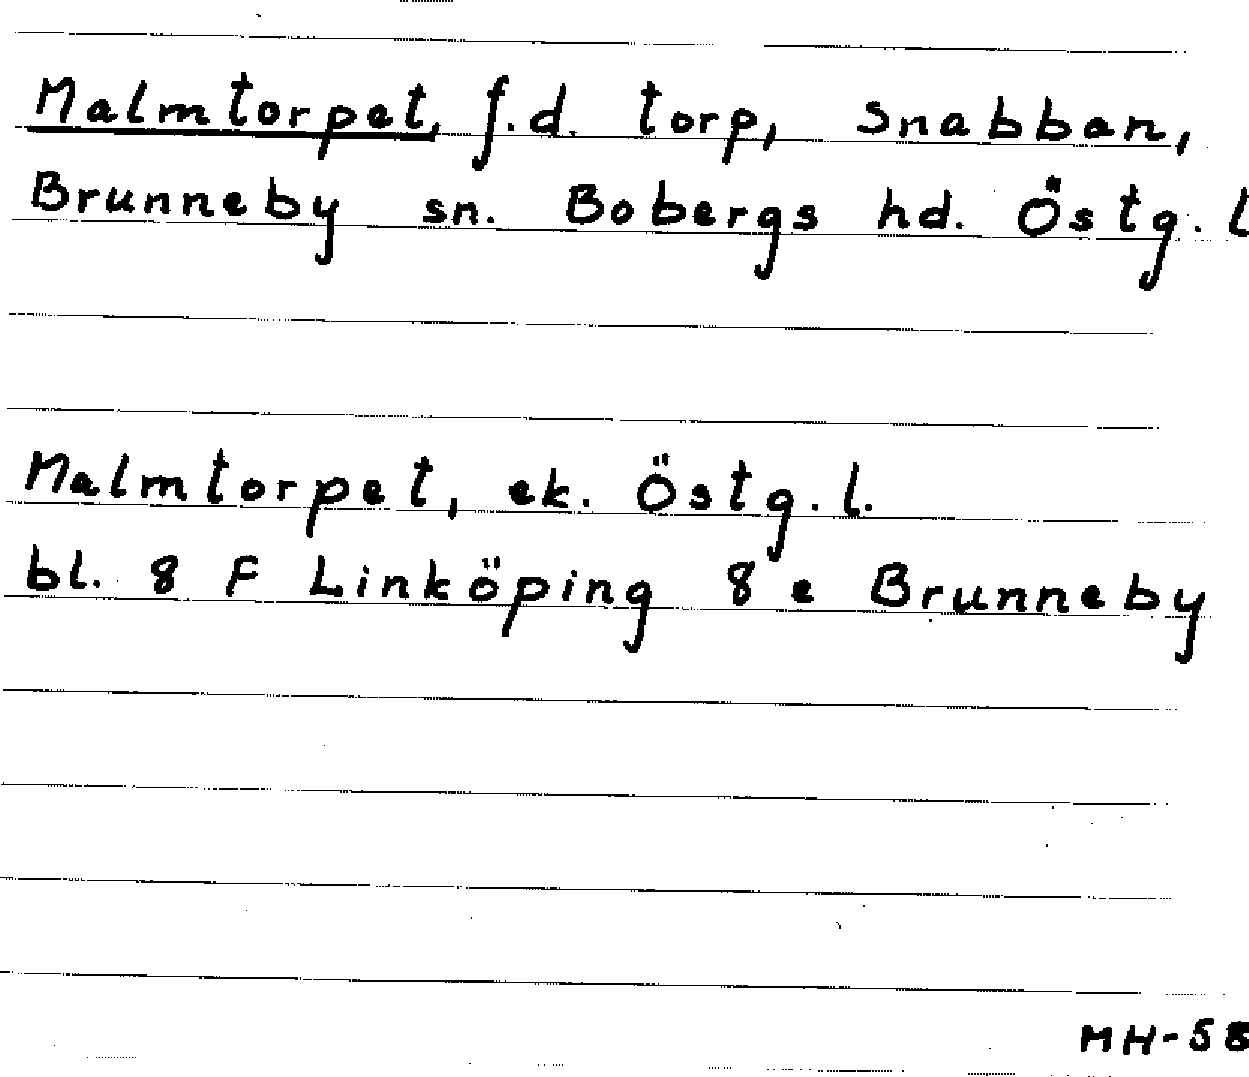 Malmtorpet, f.d. torp, Snabban,
Brunneby sn. Bobergs hd. Östg. l
Malmtorpet, ek. Östg. l.
bl. 8 F Linköping 8 e Brunneby
MH-58